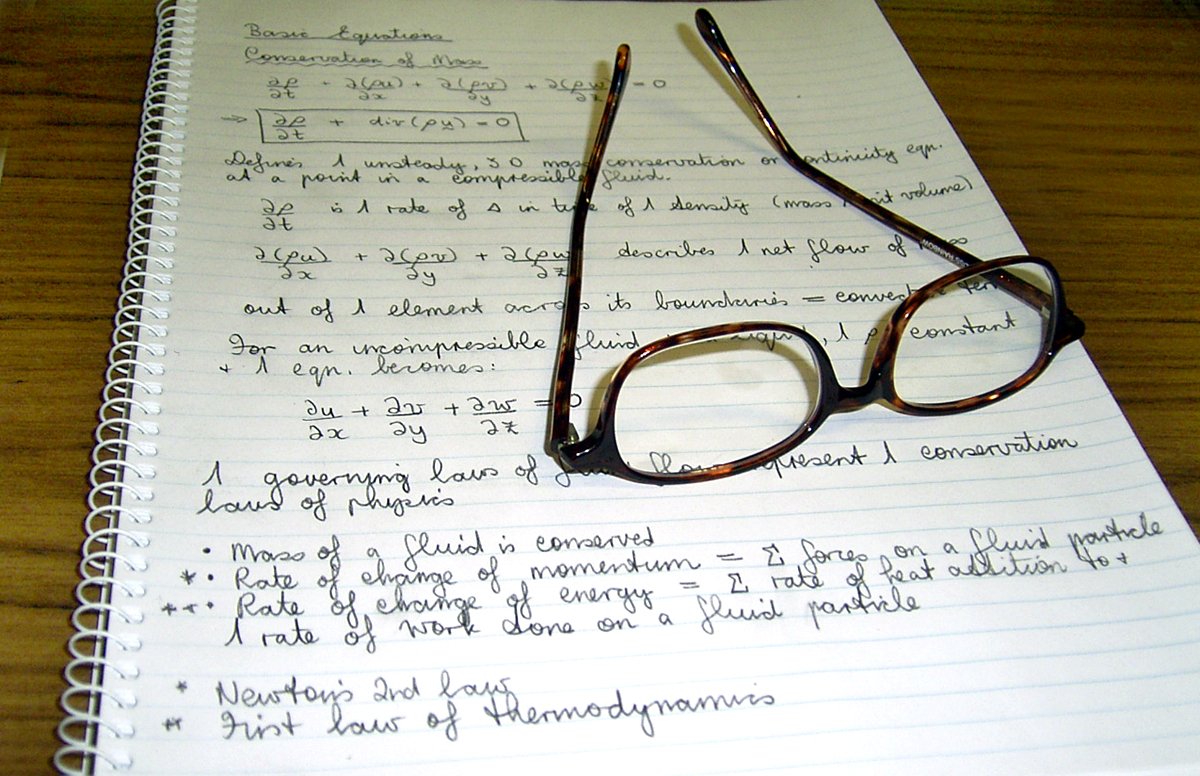 Basic Equations
Conservation of Mass
∂ρ/∂t + ∂(ρu)/∂x + ∂(ρv)/∂y + ∂(ρw)/∂z = 0
⇒ ∂ρ/∂t + div(ρu) = 0
Defines 1 unsteady, 3D mass conservation or continuity eqn.
at a point in a compressible fluid.
∂ρ/∂t is 1 rate of Δ in time of 1 density (mass unit volume)
∂(ρu)/∂x + ∂(ρv)/∂y + ∂(ρw)/∂z describes 1 net flow of mass
out of 1 element across its boundaries = convective term
For an incompressible fluid liquid, 1 ρ constant
+ 1 eqn. becomes:
∂u/∂x + ∂v/∂y + ∂w/∂z = 0
1 governing laws of flow represent 1 conservation
laws of physics
• Mass of a fluid is conserved
*• Rate of change of momentum = Σ forces on a fluid particle
**• Rate of change of energy = Σ rate of heat addition to +
1 rate of work done on a fluid particle
* Newton's 2nd law
** First law of thermodynamics